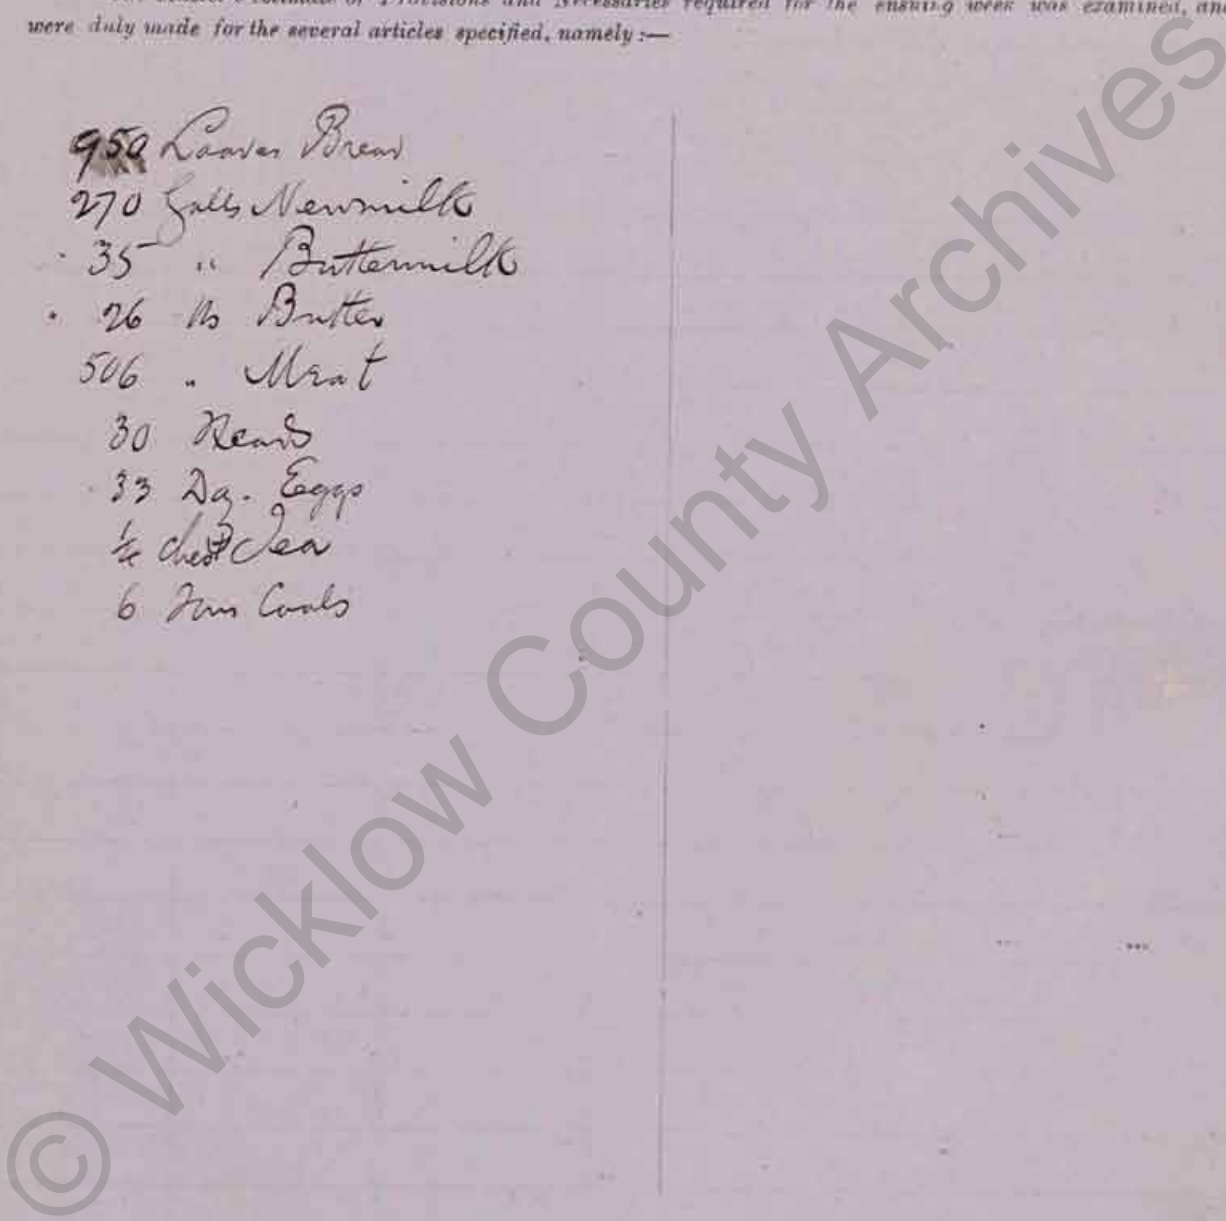 Estimate of Provisions and Necessaries required for the ensuing week was examined, and
were duly made for the several articles specified, namely :—
950 Loaves Bread
270 Galls Newmilk
35 " Buttermilk
26 lbs Butter
506 " Meat
30 Heads
33 Doz. Eggs
¼ Chest Tea
6 Tons Coals
© Wicklow County Archives